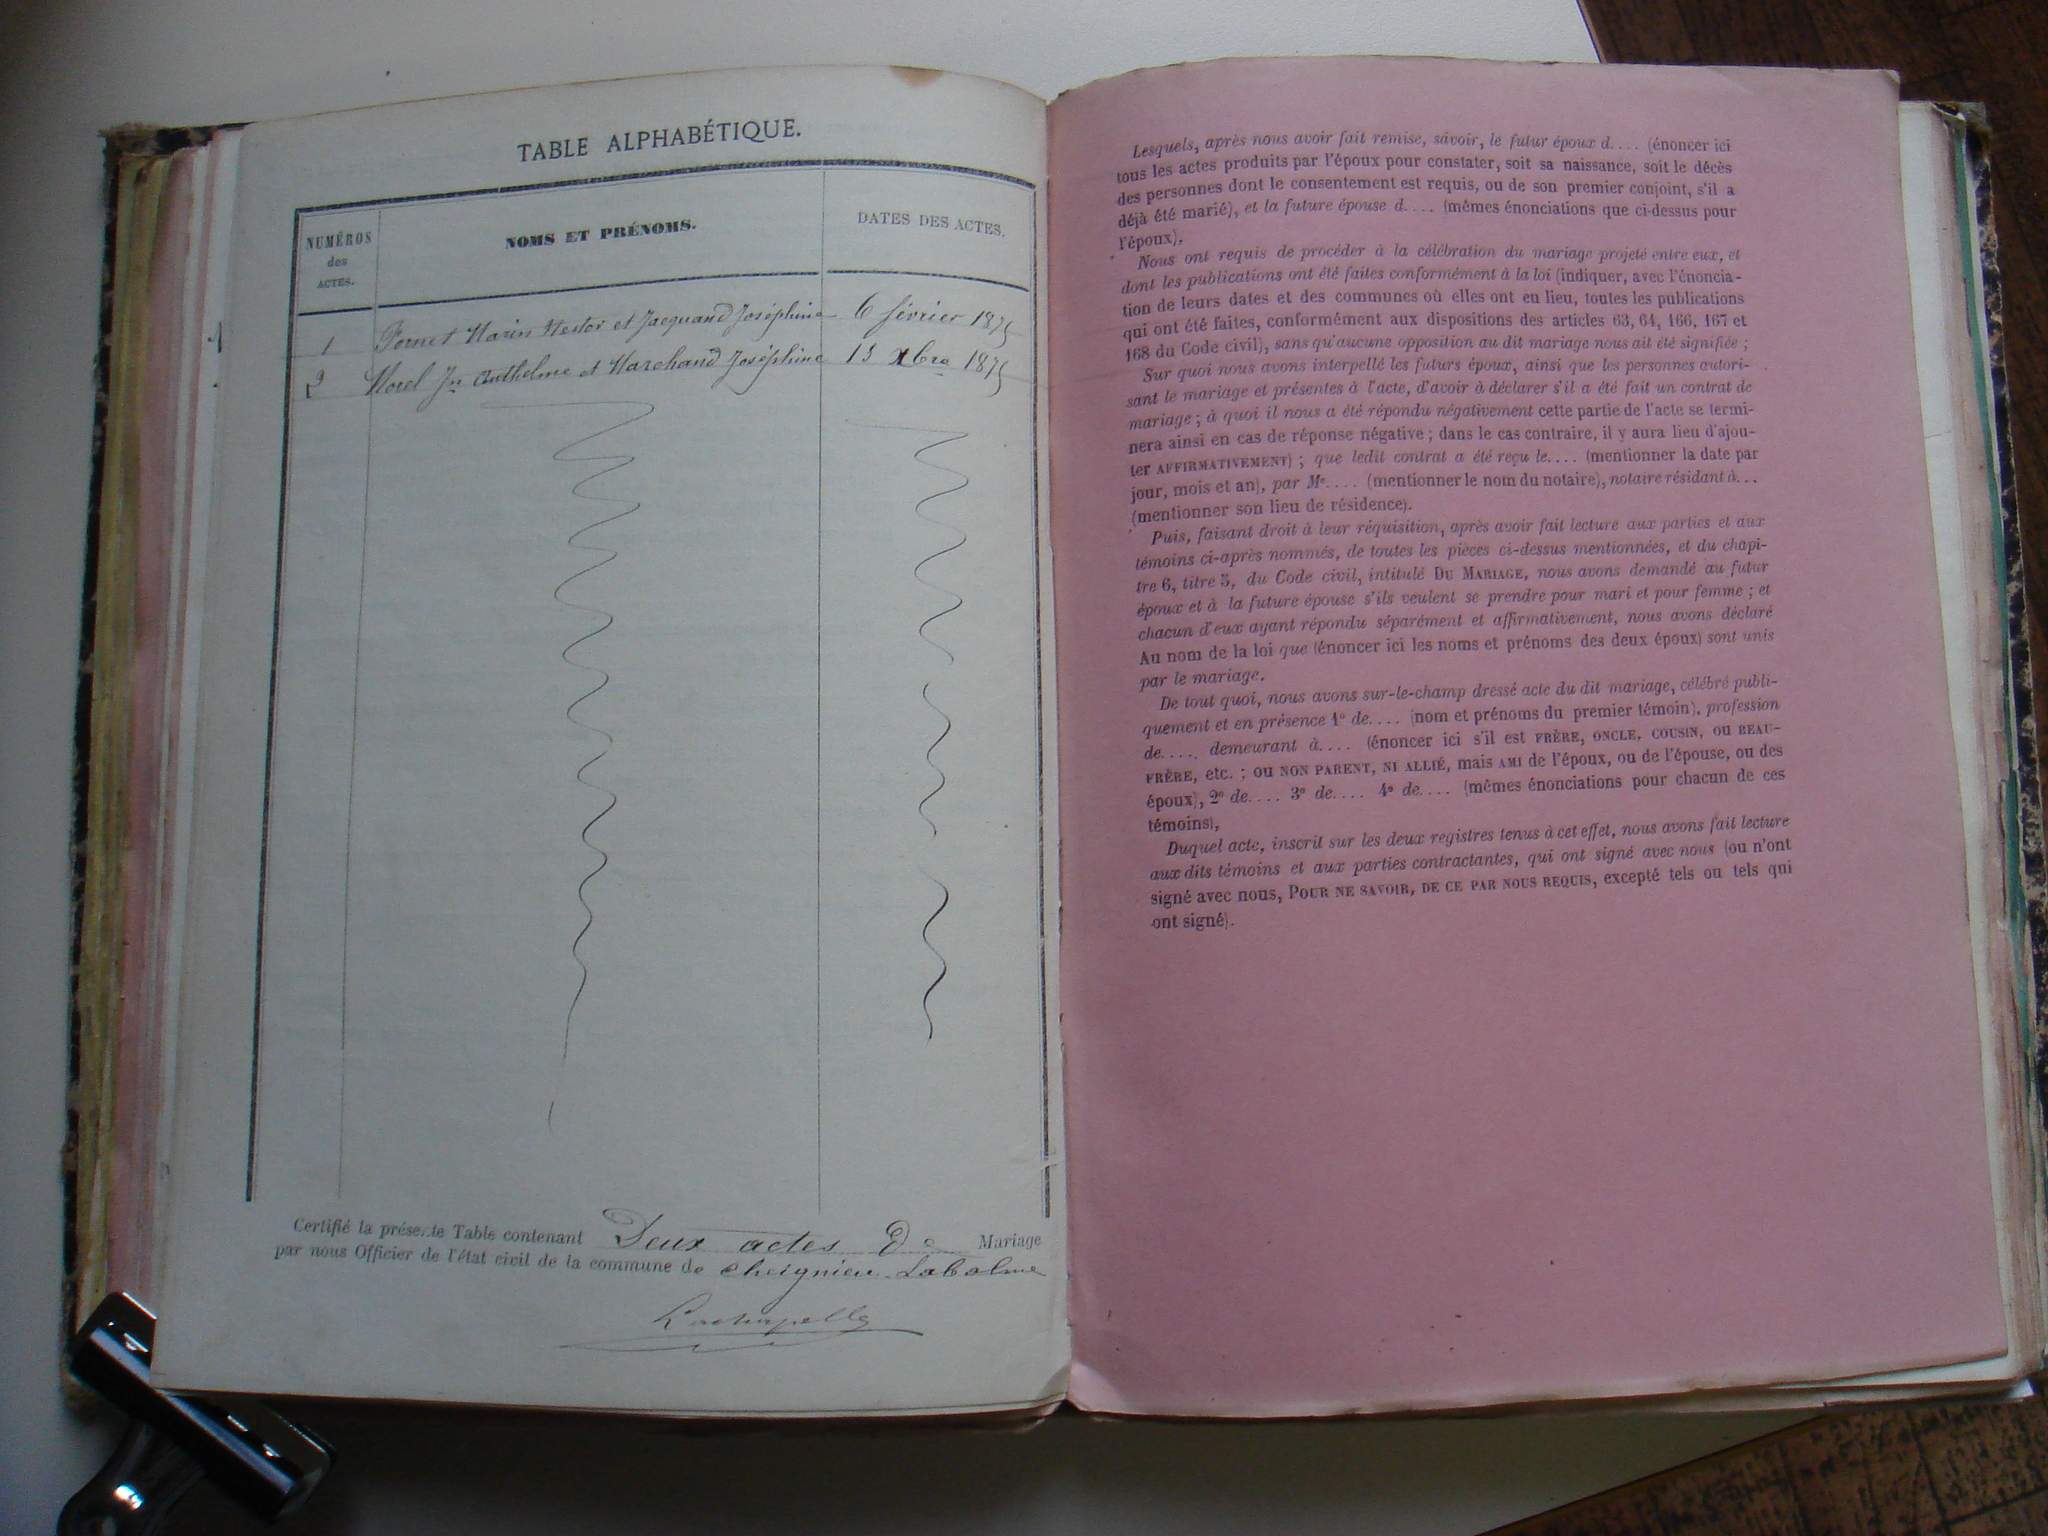 TABLE ALPHABÉTIQUE.
NUMÉROS
des
ACTES.
NOMS ET PRÉNOMS.
DATES DES ACTES.
1 Fornet Marin Nestor et Jacquand Joséphine 6 février 1875
2 Morel Jn Anthelme et Marchand Joséphine 13 xbre 1875
Certifié la présente Table contenant Deux actes De Mariage
par nous Officier de l'état civil de la commune de Cheignieu-Labalme
Lachapelle
Lesquels, après nous avoir fait remise, savoir, le futur époux d.... (énoncer ici
tous les actes produits par l'époux pour constater, soit sa naissance, soit le décès
des personnes dont le consentement est requis, ou de son premier conjoint, s'il a
déjà été marié), et la future épouse d.... (mêmes énonciations que ci-dessus pour
l'époux),
Nous ont requis de procéder à la célébration du mariage projeté entre eux, et
dont les publications ont été faites conformément à la loi (indiquer, avec l'énoncia-
tion de leurs dates et des communes où elles ont eu lieu, toutes les publications
qui ont été faites, conformément aux dispositions des articles 63, 64, 166, 167 et
168 du Code civil), sans qu'aucune opposition au dit mariage nous ait été signifiée ;
Sur quoi nous avons interpellé les futurs époux, ainsi que les personnes autori-
sant le mariage et présentes à l'acte, d'avoir à déclarer s'il a été fait un contrat de
mariage ; à quoi il nous a été répondu négativement cette partie de l'acte se termi-
nera ainsi en cas de réponse négative ; dans le cas contraire, il y aura lieu d'ajou-
ter AFFIRMATIVEMENT) ; que ledit contrat a été reçu le.... (mentionner la date par
jour, mois et an), par Me.... (mentionner le nom du notaire), notaire résidant à...
(mentionner son lieu de résidence).
Puis, faisant droit à leur réquisition, après avoir fait lecture aux parties et aux
témoins ci-après nommés, de toutes les pièces ci-dessus mentionnées, et du chapi-
tre 6, titre 5, du Code civil, intitulé DU MARIAGE, nous avons demandé au futur
époux et à la future épouse s'ils veulent se prendre pour mari et pour femme ; et
chacun d'eux ayant répondu séparément et affirmativement, nous avons déclaré
Au nom de la loi que (énoncer ici les noms et prénoms des deux époux) sont unis
par le mariage.
De tout quoi, nous avons sur-le-champ dressé acte du dit mariage, célébré publi-
quement et en présence 1° de.... (nom et prénoms du premier témoin), profession
de...., demeurant à.... (énoncer ici s'il est FRÈRE, ONCLE, COUSIN, OU BEAU-
FRÈRE, etc. ; ou NON PARENT, NI ALLIÉ, mais AMI de l'époux, ou de l'épouse, ou des
époux), 2° de.... 3° de.... 4° de.... (mêmes énonciations pour chacun de ces
témoins),
Duquel acte, inscrit sur les deux registres tenus à cet effet, nous avons fait lecture
aux dits témoins et aux parties contractantes, qui ont signé avec nous (ou n'ont
signé avec nous, POUR NE SAVOIR, DE CE PAR NOUS REQUIS, excepté tels ou tels qui
ont signé).